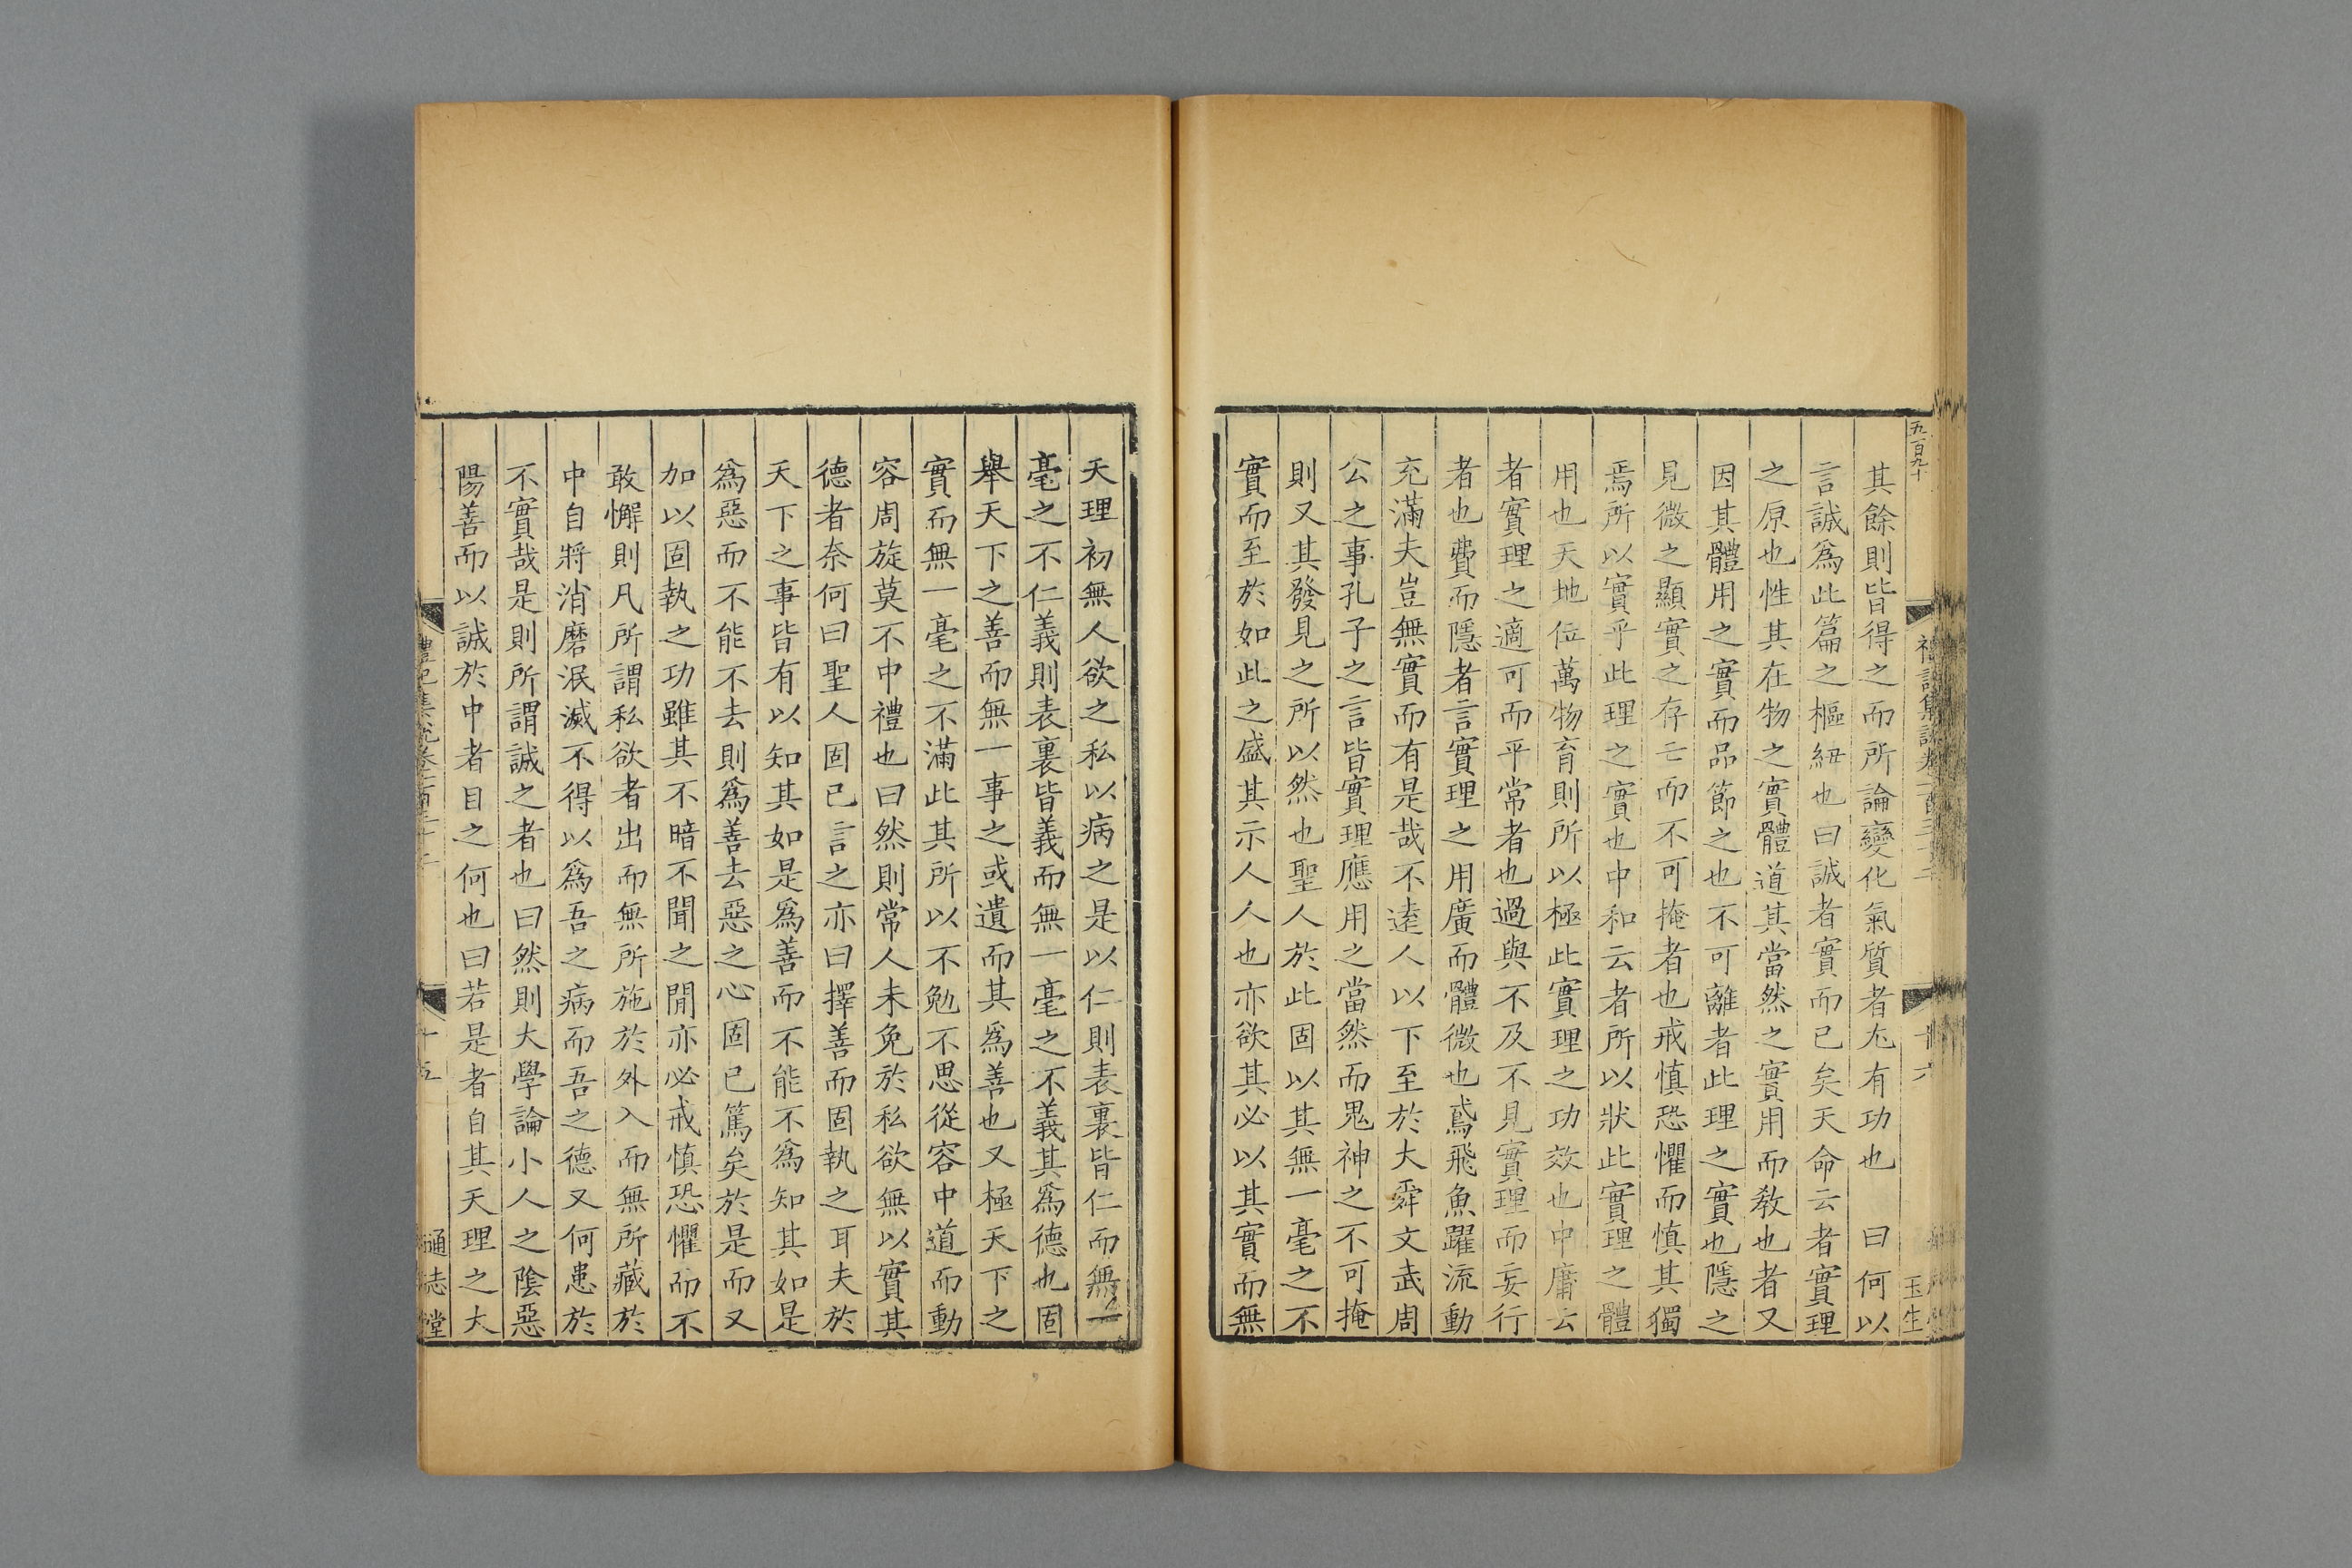 五百九十
禮記集說卷一百三十三
十六
玉生
其餘則皆得之而所論變化氣質者尤有功也　曰何以
言誠爲此篇之樞紐也曰誠者實而已矣天命云者實理
之原也性其在物之實體道其當然之實用而敎也者又
因其體用之實而品節之也不可離者此理之實也隱之
見微之顯實之存亡而不可掩者也戒慎恐懼而慎其獨
焉所以實乎此理之實也中和云者所以狀此實理之體
用也天地位萬物育則所以極此實理之功效也中庸云
者實理之適可而平常者也過與不及不見實理而妄行
者也費而隱者言實理之用廣而體微也鳶飛魚躍流動
充滿夫豈無實而有是哉不逺人以下至於大舜文武周
公之事孔子之言皆實理應用之當然而鬼神之不可掩
則又其發見之所以然也聖人於此固以其無一毫之不
實而至於如此之盛其示人人也亦欲其必以其實而無
天理初無人欲之私以病之是以仁則表裏皆仁而無一
毫之不仁義則表裏皆義而無一毫之不義其爲德也固
舉天下之善而無一事之或遺而其爲善也又極天下之
實而無一毫之不滿此其所以不勉不思從容中道而動
容周旋莫不中禮也曰然則常人未免於私欲無以實其
德者奈何曰聖人固已言之亦曰擇善而固執之耳夫於
天下之事皆有以知其如是爲善而不能不爲知其如是
爲惡而不能不去則爲善去惡之心固已篤矣於是而又
加以固執之功雖其不暗不聞之閒亦必戒慎恐懼而不
敢懈則凡所謂私欲者出而無所施於外入而無所藏於
中自將消磨泯滅不得以爲吾之病而吾之德又何患於
不實哉是則所謂誠之者也曰然則大學論小人之陰惡
陽善而以誠於中者目之何也曰若是者自其天理之大
禮記集說卷一百三十三
十五
通志堂